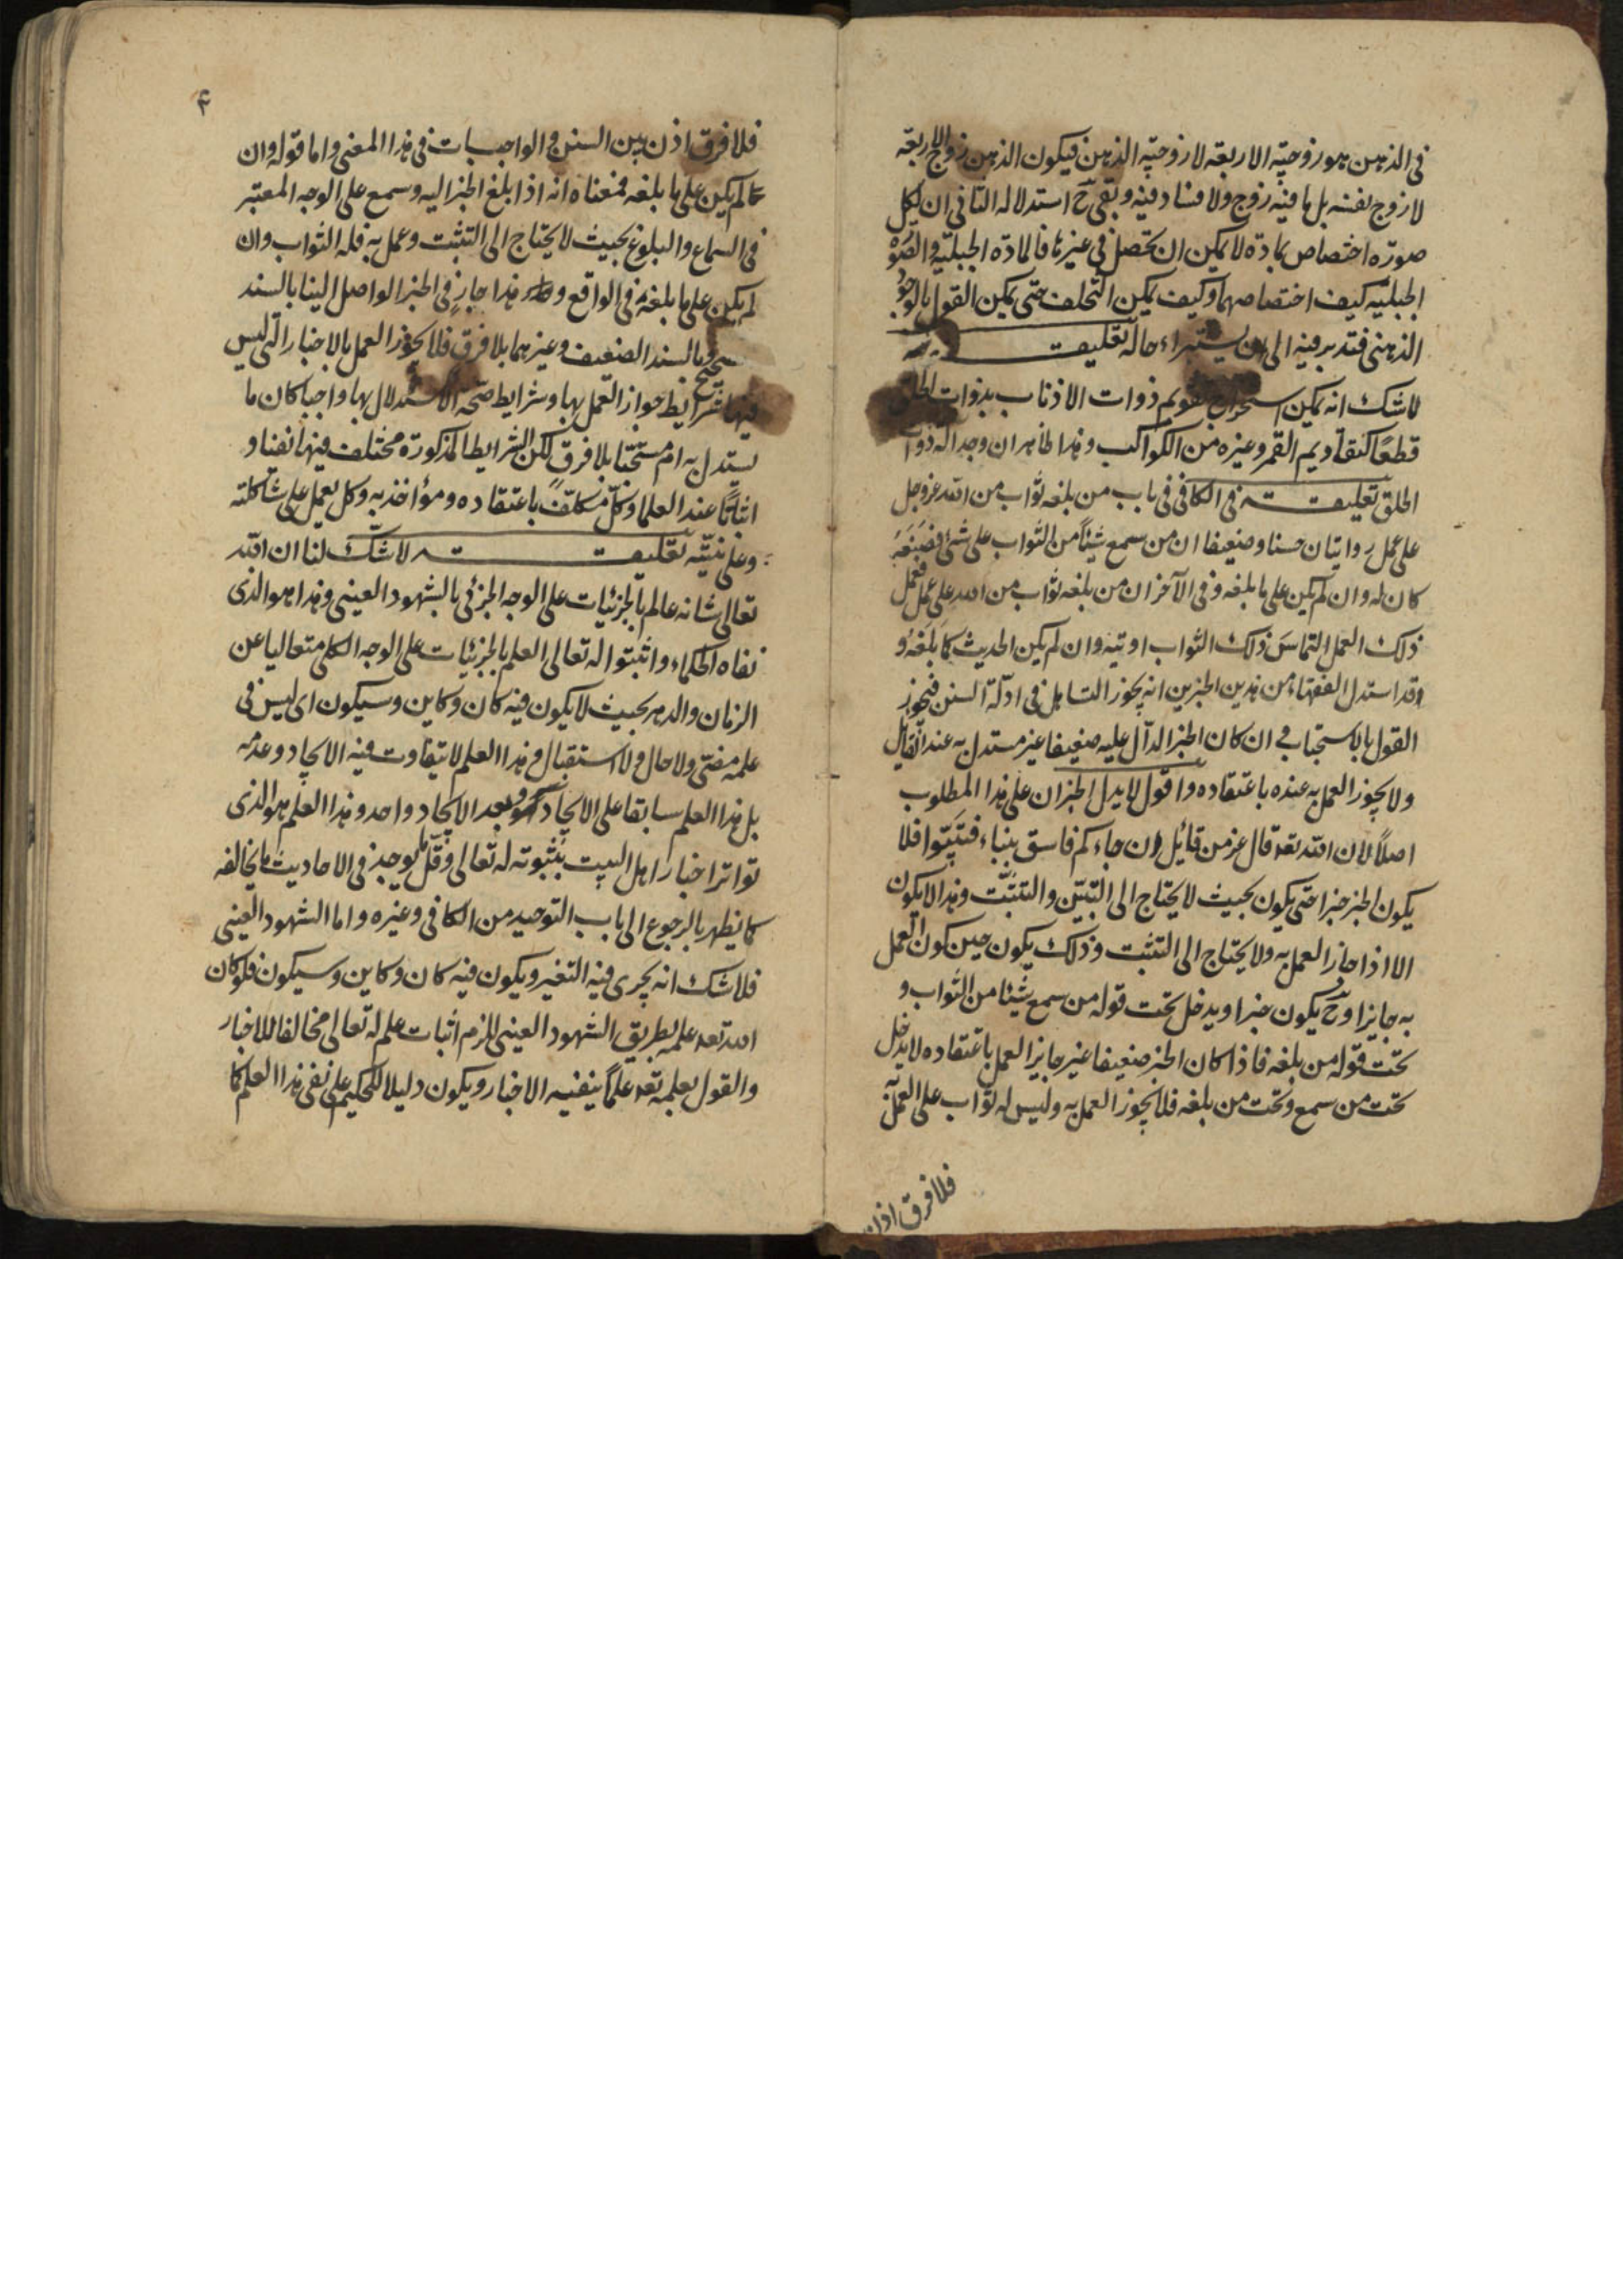 فى الذهن هو زوجيّة الاربعة لا زوجيّة الذهن فيكون الذهن زوج الاربعة
لا زوج نفسه بل ما فيه زوج ولا فساد فيه وبقى ح استدلاله الثانى ان لكل
صورة اختصاص بمادة لا يمكن ان تحصل فى غيرها فالمادة الجبليّة والصورة
الجبليّه كيف اختصاصهما وكيف يمكن التخلف حتى يمكن القول بالوجود
الذهنى فتدبر فيه الى ان حاله تعليقة
لا شك انه يمكن استخراج تقويم ذوات الاذناب بذوات الحلق
قطعًا كتقاويم القمر وغيره من الكواكب وهذا ظاهر ان وجد آلة ذوات
الحلق تعليقة فى الكافى فى باب من بلغه ثواب من الله عز وجل
على عمل روايتان حسنا وضعيفا ان من سمع شيئًا من الثواب على شئ فصَنَعَه
كان له وان لم يكن على ما بلغه وفى الآخر ان من بلغه ثواب من الله على عمل فعمل
ذلك العمل التماسَ ذلك الثواب اوتيه وان لم يكن الحديث كما بَلَغَه و
قد استدل الفقهاء من هذين الخبرين انه يجوز التساهل فى ادلّة السنن فيجوز
القول بالاستحباب فى ان كان الخبر الدآل عليه ضعيفا غير مستدل به عند القايل
ولا يجوز العمل به عنده باعتقاده واقول لا يدل الخبران على هذا المطلوب
اصلًا لان الله تعه قال عز من قائل ان جاءكم فاسق بنباء فتبيّنوا فلا
يكون الخبر خبرا حتى يكون بحيث لا يحتاج الى التبيّن والتثبّت وهذا لا يكون
الا اذا جاز العمل به ولا يحتاج الى التثبت وذلك يكون حين كون العمل
به جايزا وح يكون خبرا ويدخل تحت قوله من سمع شيئا من الثواب و
تحت قوله من بلغه فاذا كان الخبر ضعيفا غير جايز العمل باعتقاده لا يدخل
تحت من سمع وتحت من بلغه فلا يجوز العمل به وليس له ثواب على العمل به
فلا فرق اذن
۴
فلا فرق اذن بين السنن والواجبات فى هذا المعنى واما قوله وان
لم يكن على ما بلغه فمعناه انه اذا بلغ الخبر اليه وسمع على الوجه المعتبر
فى السماع والبلوغ بحيث لا يحتاج الى التثبت وعمل به فله الثواب وان
لم يكن على ما بلغه فى الواقع وهذا جارٍ فى الخبر الواصل الينا بالسند
الصحيح وبالسند الضعيف وغيرهما بلا فرق فلا يجوز العمل بالاخبار التى ليس
فيها شرايط جواز العمل بها وشرايط صحّة الاستدلال بها واجبا كان ما
يستدل به ام مستحبّا بلا فرق لكن الشرايط المذكورة مختلف فيها نفيا و
اثباتًا عند العلما وكلّ مكلّف باعتقاده ومؤاخذ به وكل يعمل على شاكلته
وعلى نيّته تعليقة لا شكّ لنا ان الله
تعالى شانه عالم بالجزئيات على الوجه الجزئى بالشهود العينى وهذا هو الذى
نفاه الحكماء واثبتوا له تعالى العلم بالجزئيات على الوجه الكلى متعاليا عن
الزمان والدهر بحيث لا يكون فيه كان وكاين وسيكون اى ليس فى
علمه مضىّ ولا حال ولا استقبال وهذا العلم لا يتفاوت فيه الايجاد وعدمه
بل هذا العلم سابقا على الايجاد وبعد الايجاد واحد وهذا العلم هو الذى
تواتر اخبار اهل البيت بثبوته له تعالى وقلّ ما يوجد فى الاحاديث ما يخالفه
كما يظهر بالرجوع الى باب التوحيد من الكافى وغيره واما الشهود العينى
فلا شك انه يجرى فيه التغير ويكون فيه كان وكاين وسيكون فلو كان
الله تعه علمه بطريق الشهود العينى للزم اثبات علم له تعالى مخالفا للاخبار
والقول بعلمه تعه علمًا ينفيه الاخبار ويكون دليلا للحكيم على نفى هذا العلم كما